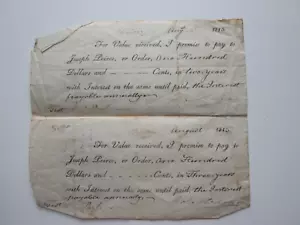 Aug 181
For Value received, I promise to pay to
Joseph Peirce, or Order, One Hundred
Dollars and Cents, in two years
with Interest on the same until paid, the Interest
payable annually.
August 181
For Value received, I promise to pay to
Joseph Peirce, or Order, One Hundred
Dollars and Cents, in Three years
with Interest on the same until paid, the Interest
payable annually.